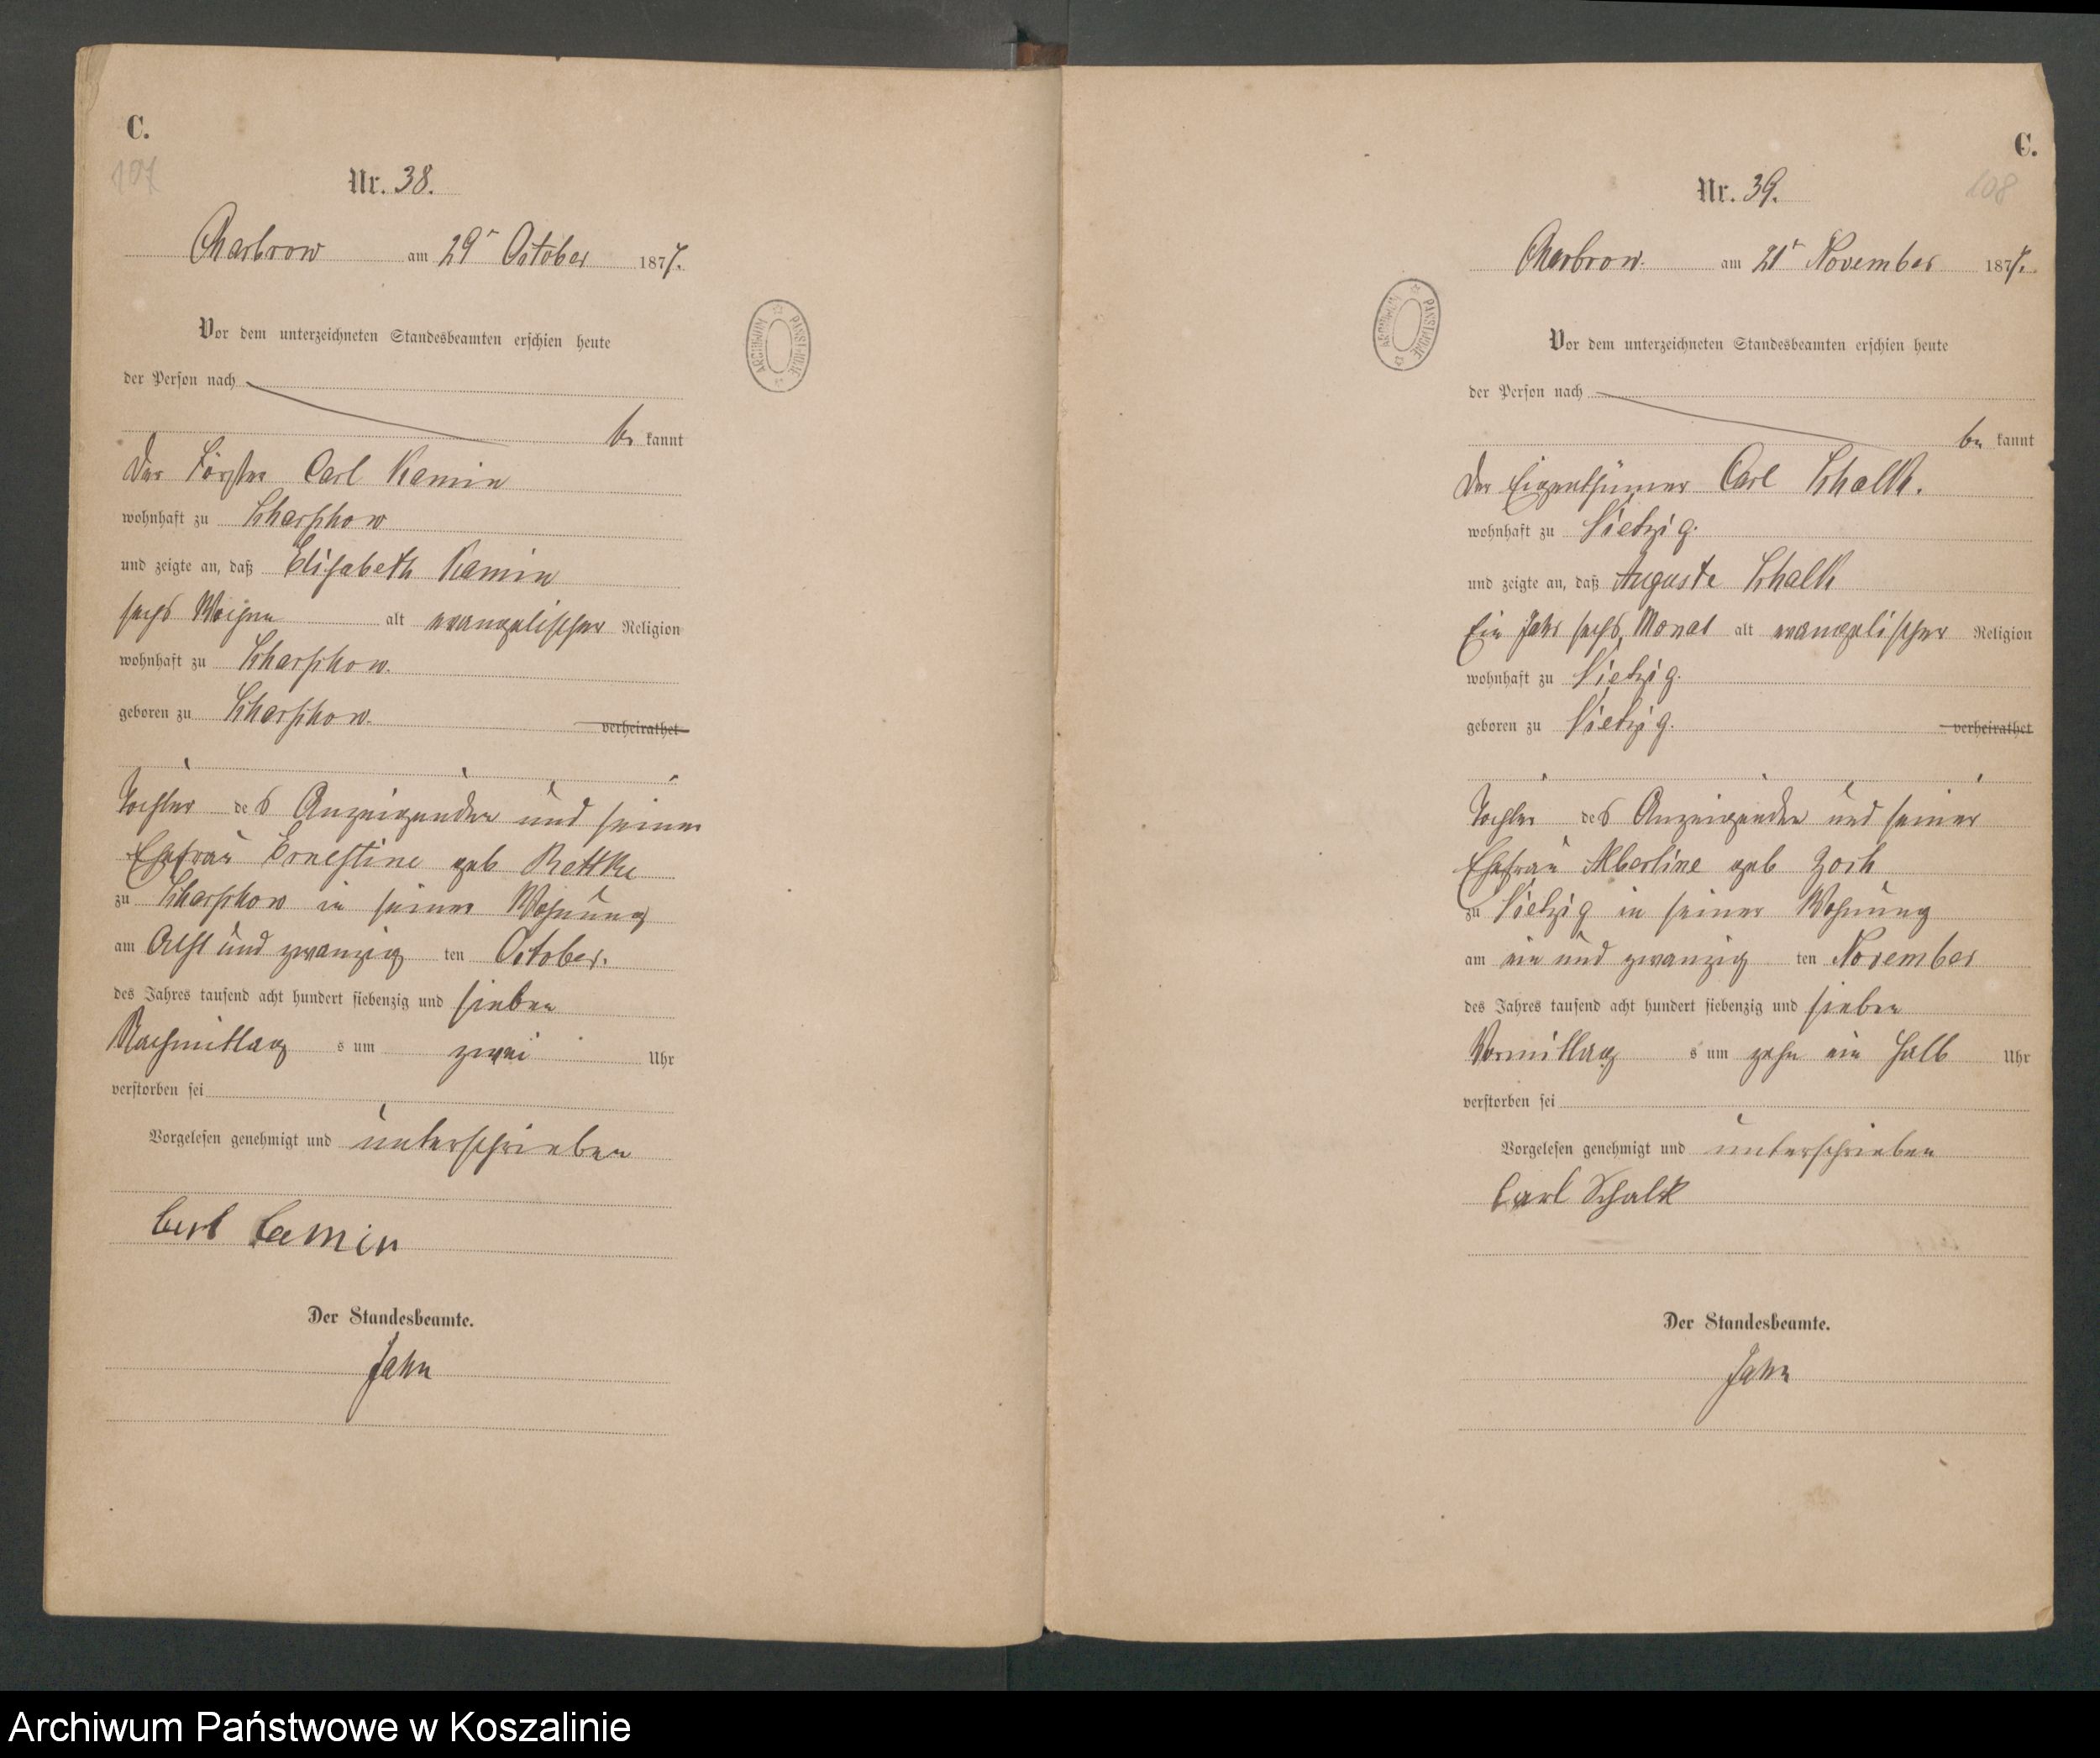 C.
107
Nr. 38.
Charbrow am 29t October 1877.
ARCHIWUM PAŃSTWOWE
Vor dem unterzeichneten Standesbeamten erschien heute
der Person nach
be kannt
Der Förster Carl Kamin
wohnhaft zu Scharschow
und zeigte an, daß Elisabeth Kamin
sechs Wochen alt evangelischer Religion
wohnhaft zu Scharschow.
geboren zu Scharschow. verheirathet
Tochter des Anzeigenden und seiner
Ehefrau Ernestine geb Rettke
zu Scharschow in seiner Wohnung
am Acht und zwanzig ten October.
des Jahres tausend acht hundert siebenzig und sieben
Nachmittag s um zwei Uhr
verstorben sei
Vorgelesen genehmigt und unterschrieben
Carl Camin
Der Standesbeamte.
Jahn
C.
108
Nr. 39.
Charbrow. am 21t November 1877.
ARCHIWUM PAŃSTWOWE
Vor dem unterzeichneten Standesbeamten erschien heute
der Person nach
be kannt
Der Eigenthümer Carl Schalk.
wohnhaft zu Vietzig.
und zeigte an, daß Auguste Schalk
Ein Jahr sechs Monat alt evangelischer Religion
wohnhaft zu Vietzig.
geboren zu Vietzig. verheirathet
Tochter des Anzeigenden und seiner
Ehefrau Albertine geb Zoch
zu Vietzig in seiner Wohnung
am ein und zwanzig ten November
des Jahres tausend acht hundert siebenzig und sieben
Vormittag s um zehn ein halb Uhr
verstorben sei
Vorgelesen genehmigt und unterschrieben
Carl Schalk
Der Standesbeamte.
Jahn
Archiwum Państwowe w Koszalinie